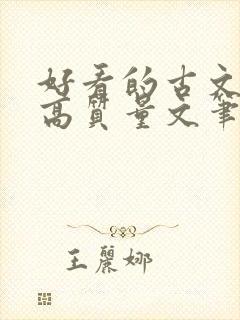 好看的古文
高質量文筆
王麗娜